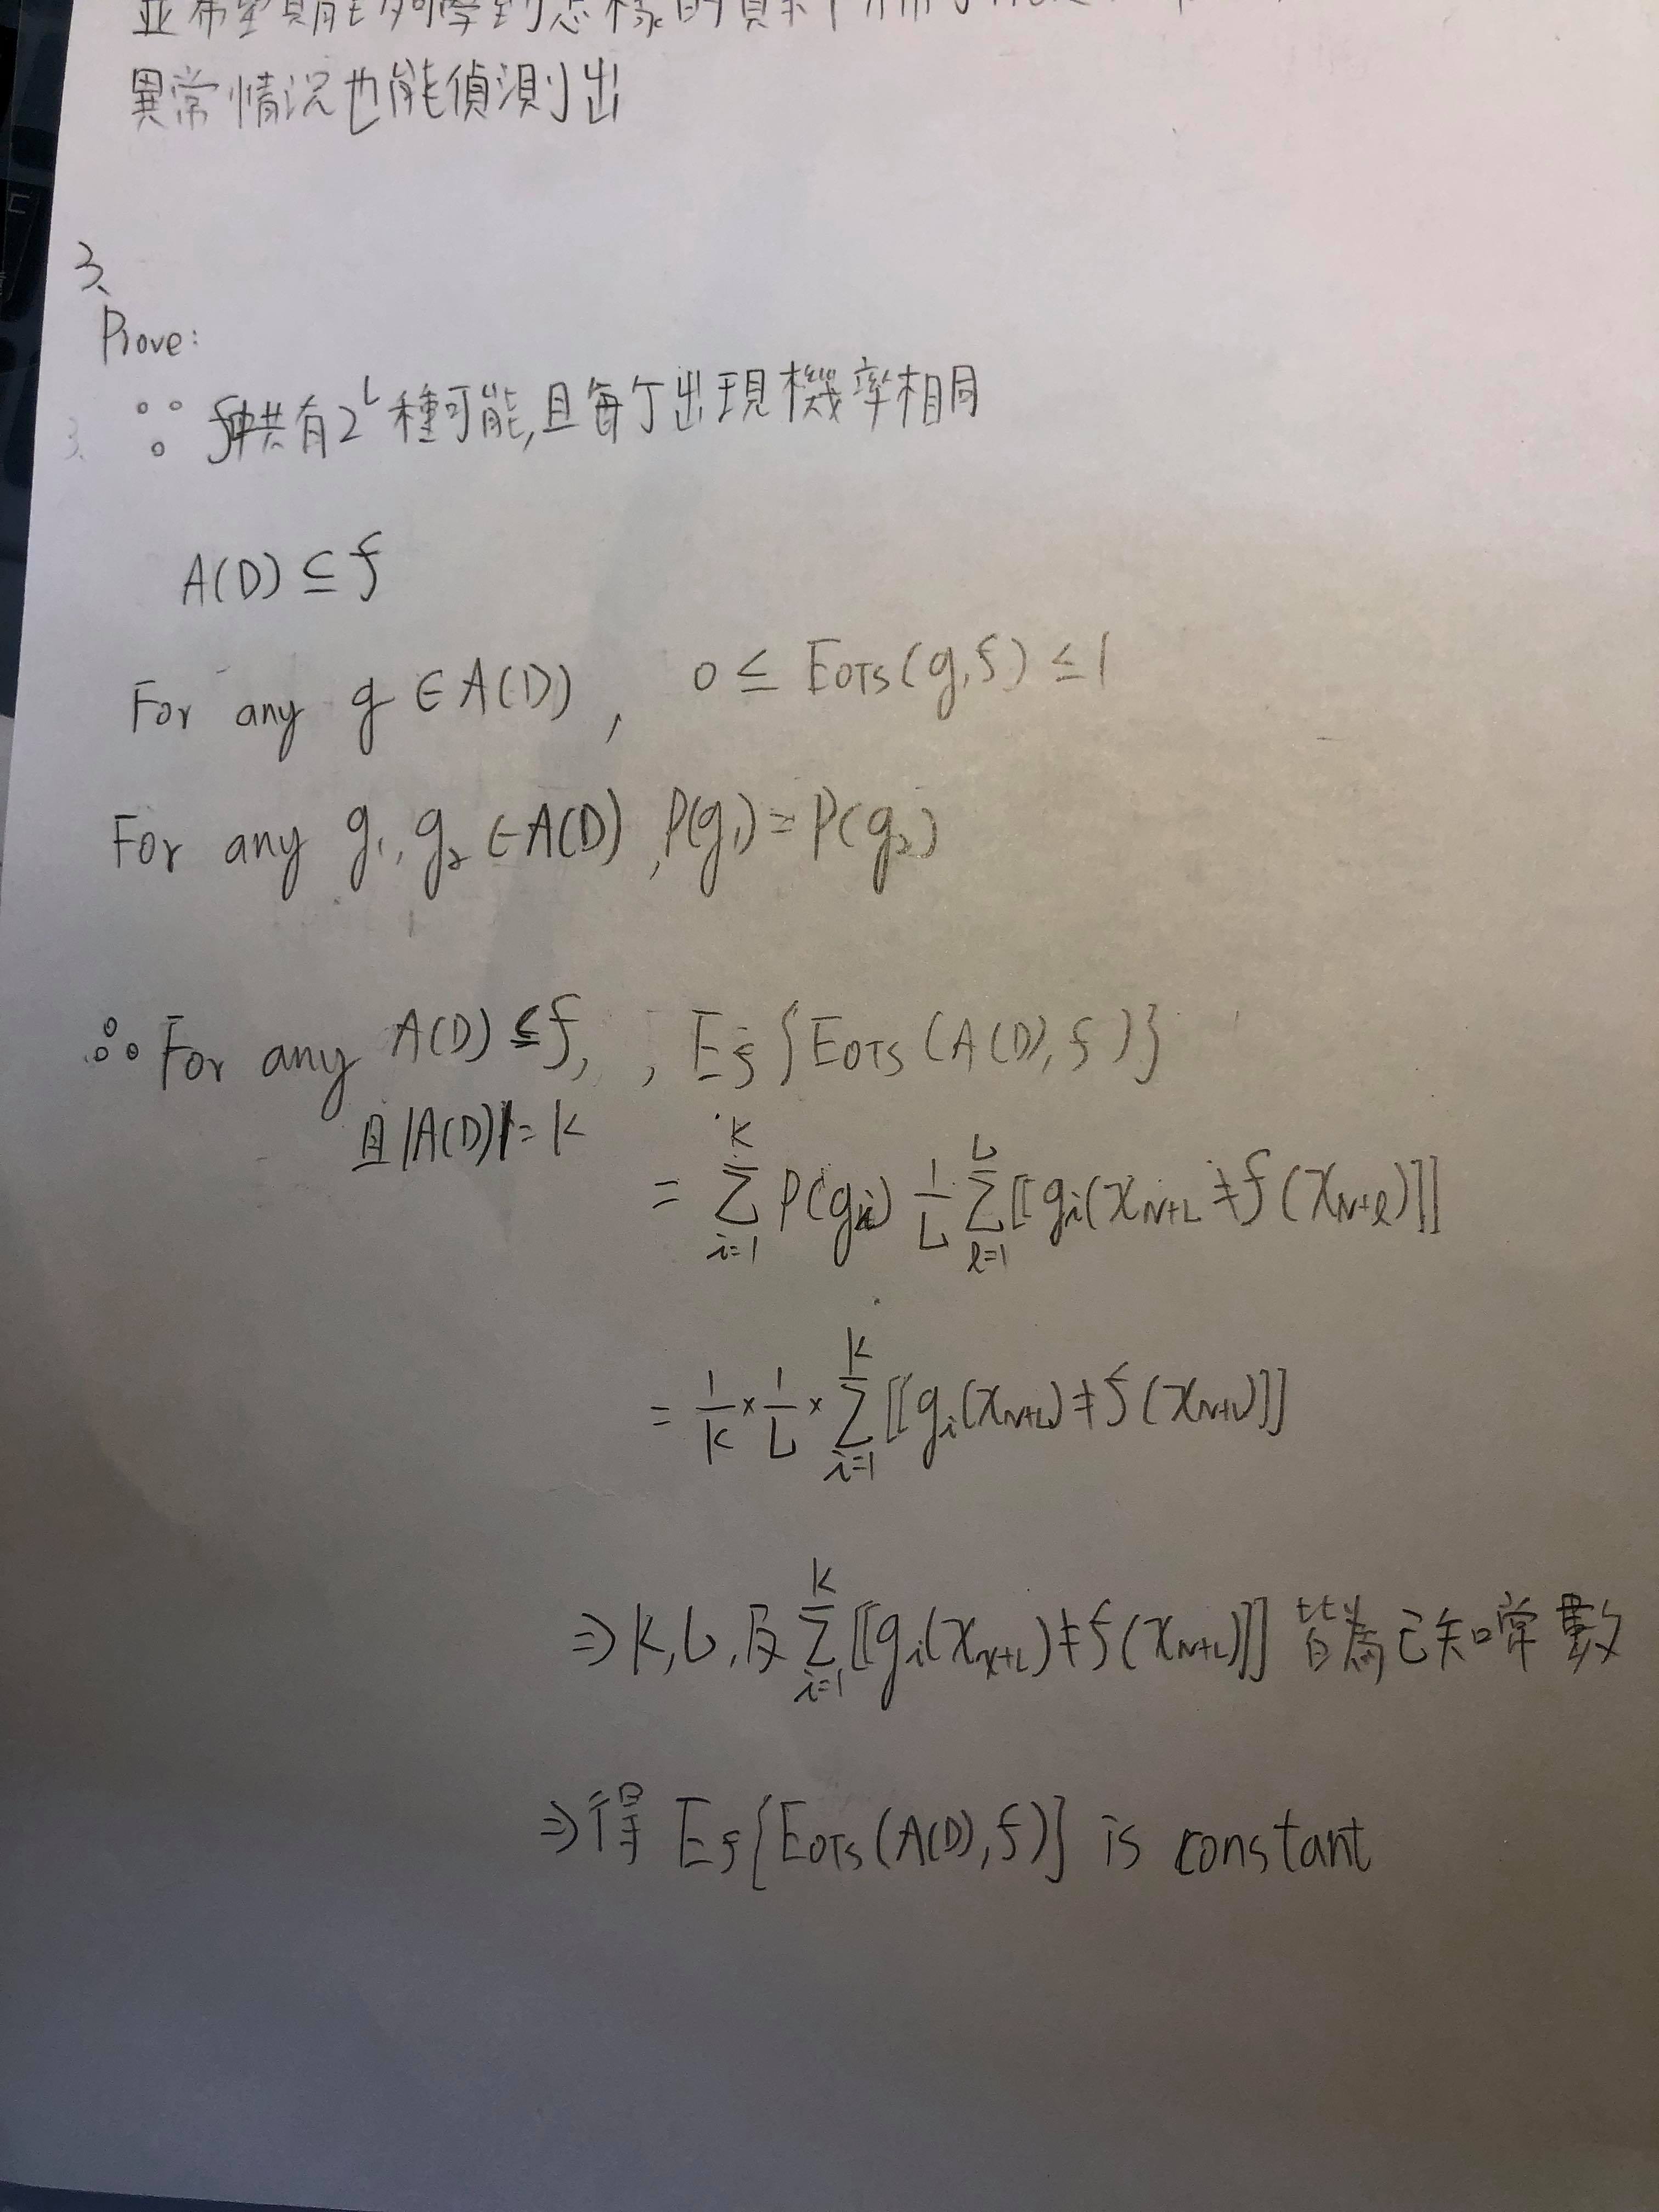 並希望其能夠學到怎樣的資料
異常情況也能偵測出
3、
Prove:
3、
∵ f中共有2^L種可能,且每个出現機率相同
A(D) ⊆ f
For any g ∈ A(D), 0 ≤ E_OTS(g,f) ≤ 1
For any g₁, g₂ ∈ A(D), P(g₁) = P(g₂)
∴ For any A(D) ⊆ f, , E_f{E_OTS(A(D), f)}
且|A(D)| = K
= Σ_{i=1}^{K} P(g_i) 1/L Σ_{ℓ=1}^{L} [[g_i(x_{N+L} ≠ f(x_{N+ℓ})]]
= 1/K × 1/L × Σ_{i=1}^{K} [[g_i(x_{N+L}) ≠ f(x_{N+L})]]
⇒ K, L, 及 Σ_{i=1}^{K} [[g_i(x_{x+L}) ≠ f(x_{N+L})]] 皆為已知常數
⇒ 得 E_f{E_OTS(A(D), f)} is constant